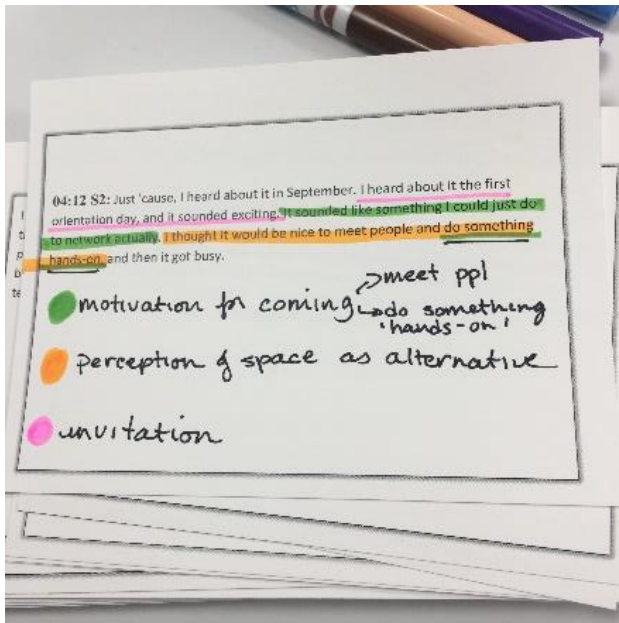 04:12 S2: Just 'cause, I heard about it in September. I heard about it the first
orientation day, and it sounded exciting. It sounded like something I could just do
to network actually. I thought it would be nice to meet people and do something
hands-on, and then it got busy.
meet ppl
motivation for coming do something
'hands-on'
perception of space as alternative
invitation